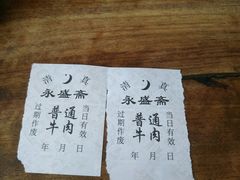 清 真
永盛斋
当日有效
普通
牛肉
过期作废
年 月 日
清 真
永盛斋
当日有效
普通
牛肉
过期作废
年 月 日